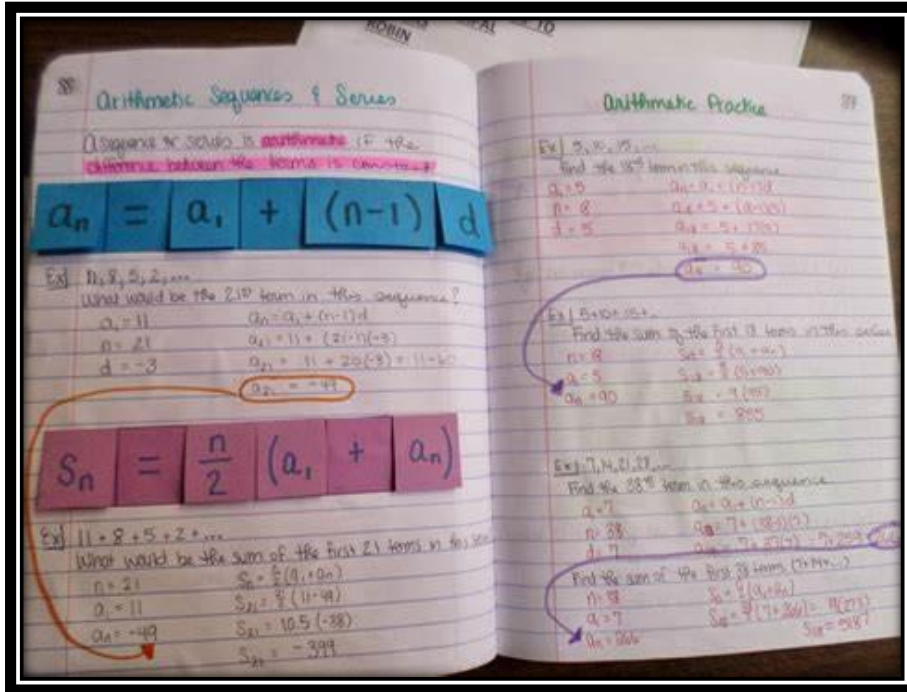 TO
ROBIN
88
Arithmetic Sequences & Series
A sequence or series is arithmetic if the
difference between the terms is constant
an = a1 + (n-1) d
Ex] 11, 8, 5, 2, ...
What would be the 21st term in this sequence?
a1 = 11
n = 21
d = -3
an = a1 + (n-1)d
a21 = 11 + (21-1)(-3)
a21 = 11 + 20(-3) = 11-60
a21 = -49
Sn = n/2 (a1 + an)
Ex] 11 + 8 + 5 + 2 + ...
What would be the sum of the first 21 terms in this
n = 21
a1 = 11
an = -49
Sn = n/2 (a1 + an)
S21 = 21/2 (11-49)
S21 = 10.5 (-38)
S21 = -399
Arithmetic Practice
89
Ex] 5, 10, 15, ...
Find the 18th term in this sequence
a1 = 5
d = 5
an = a1 + (n-1)d
a18 = 5 + 17(5)
a18 = 5 + 85
a18 = 90
Ex] 5+10+15+...
Find the sum of the first 18 terms in this series
n = 18
a1 = 5
an = 90
Sn = n/2 (a1 + an)
S18 = 18/2 (5+90)
S18 = 9 (95)
S18 = 855
Ex] 7, 14, 21, 28, ...
Find the 38th term in this sequence
a1 = 7
n = 38
d = 7
an = a1 + (n-1)d
a38 = 7 + (38-1)(7)
a38 = 7 + 37(7) = 7 + 259
Find the sum of the first 38 terms (7+14+...)
n = 38
a1 = 7
an = 266
Sn = n/2 (a1 + an)
S38 = 38/2 (7+266) = 19(273)
S38 = 5187